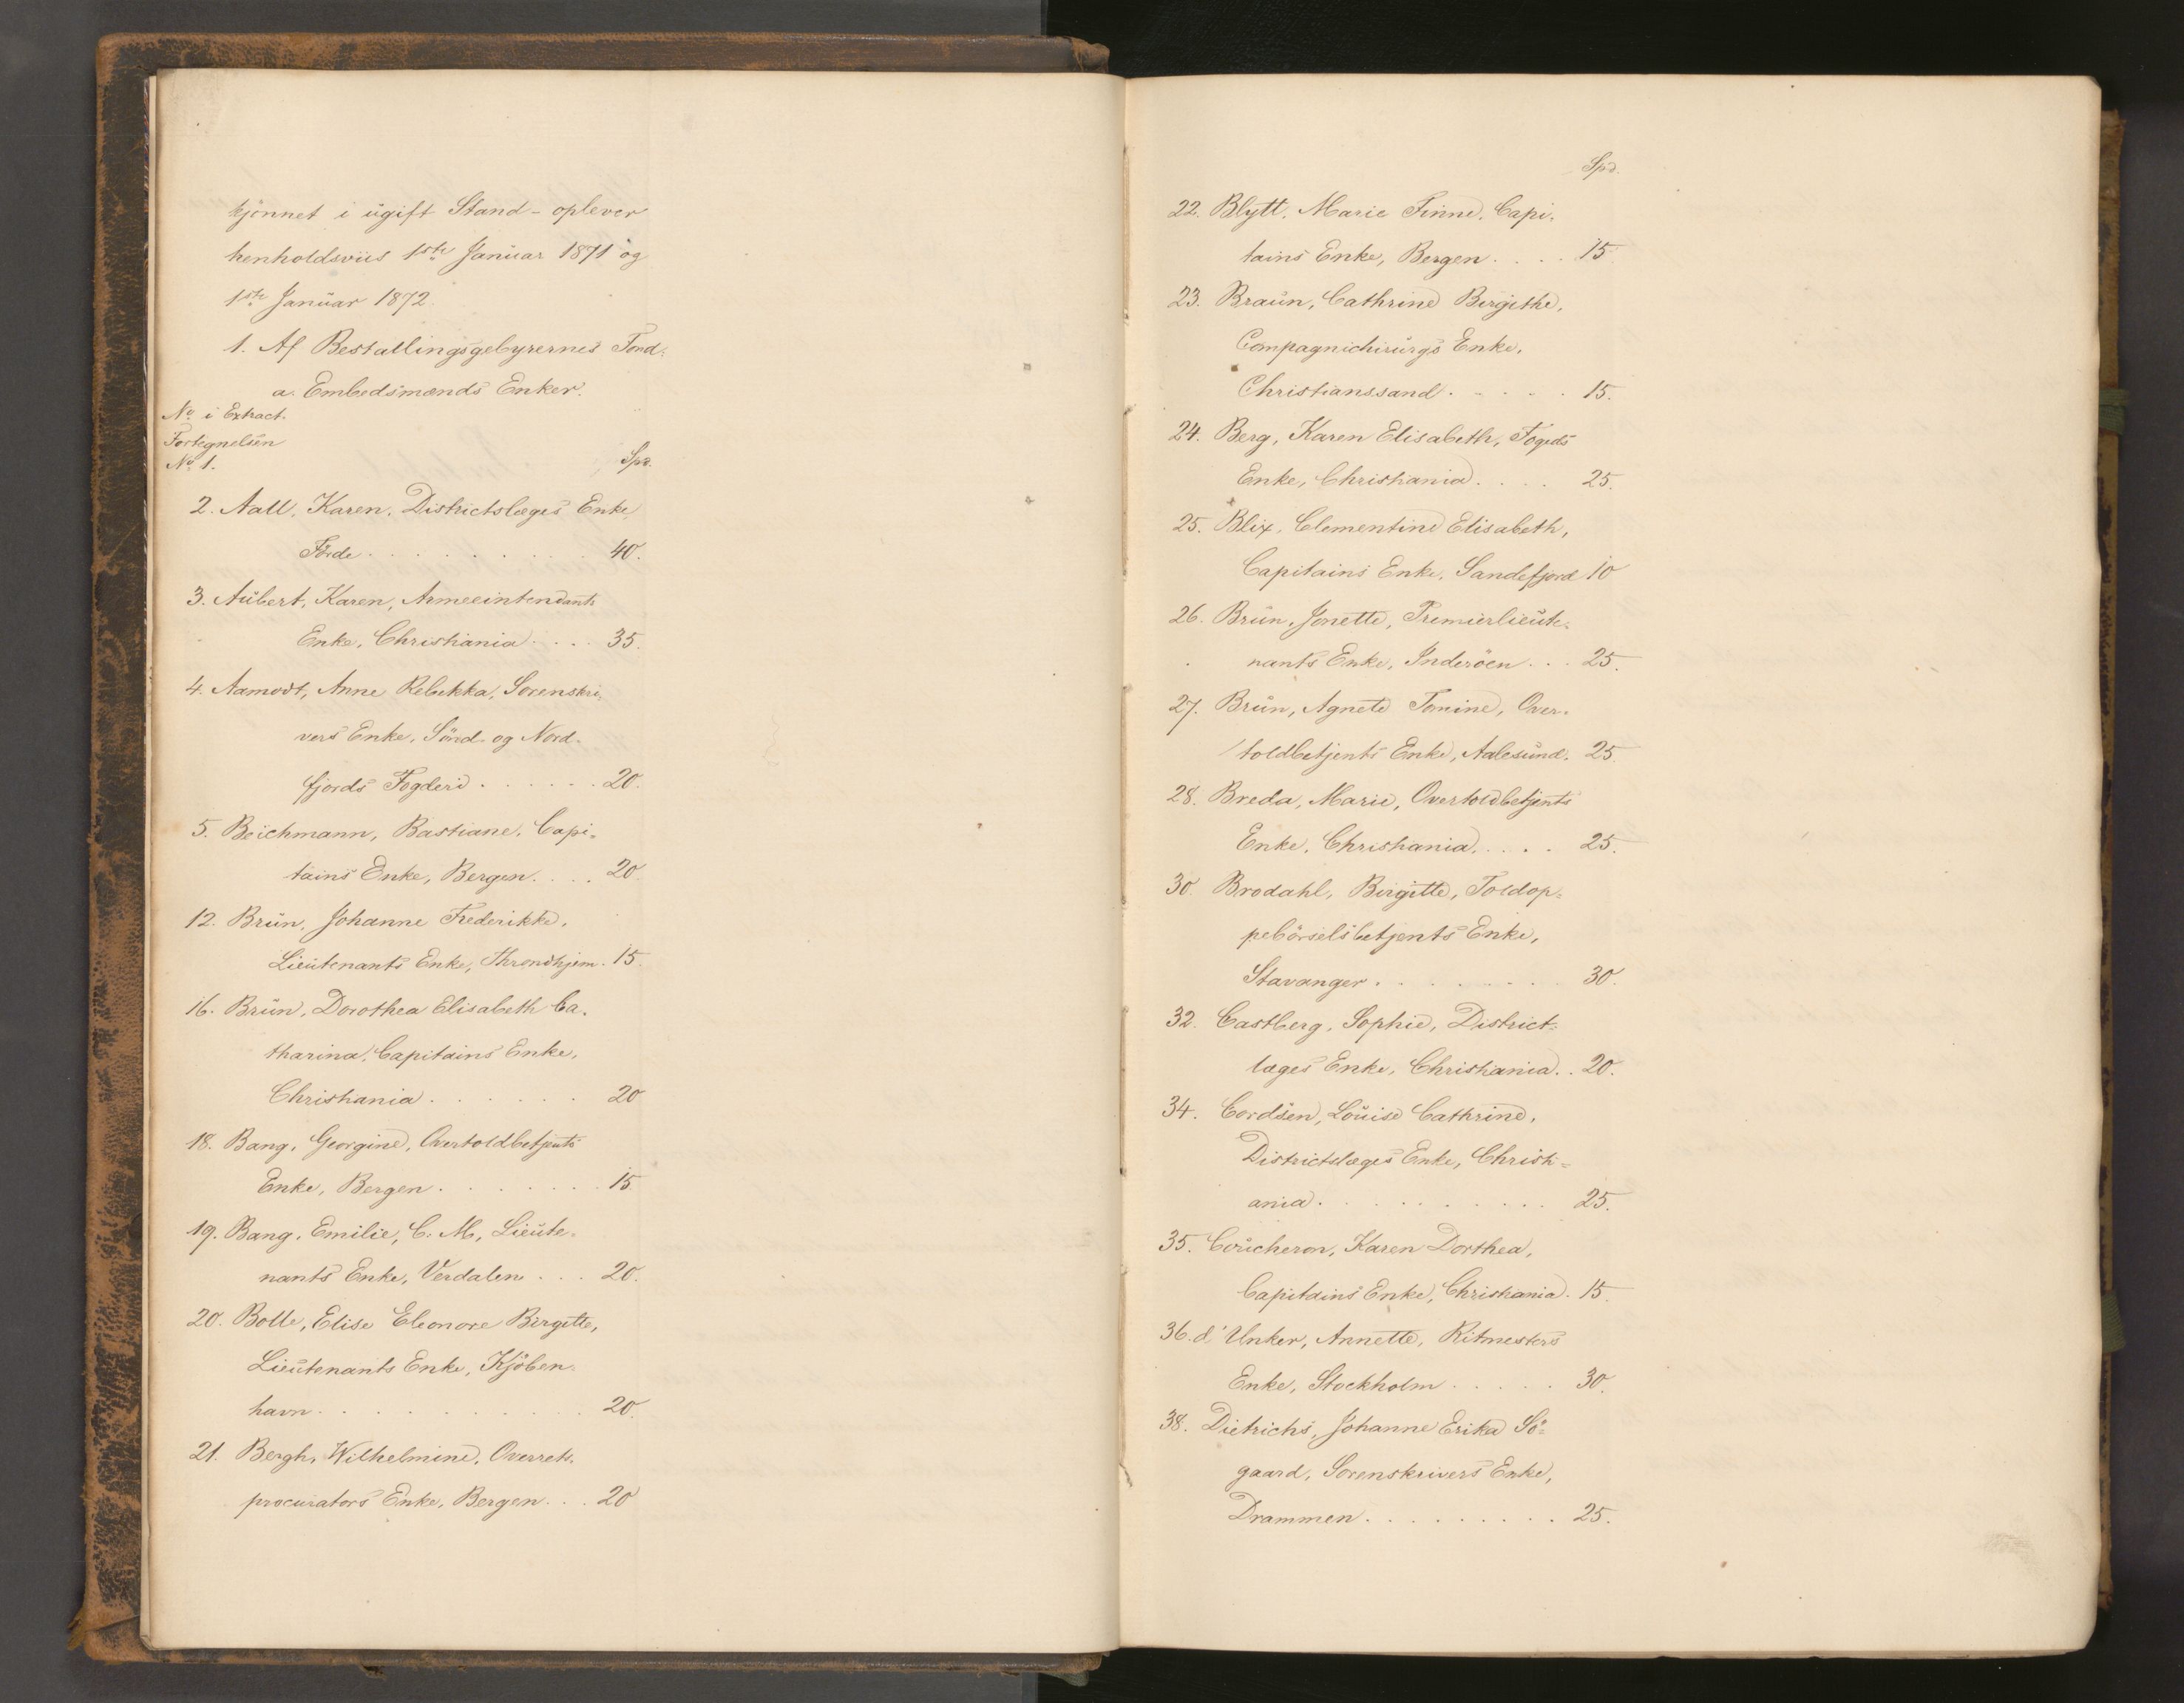 kjønnet i ugift Stand - oplever
henholdsviis 1ste Januar 1871 og
1ste Januar 1872.
1. Af Bestallingsgebyrernes Fond.
a. Embedsmænds Enker.
No. i Extract.
Fortegnelsen
No. 1.
Spd.
2. Aall, Karen, Districtslæges Enke,
Förde . . . . . . . . 40.
3. Aubert, Karen, Armeeintendants
Enke, Christiania . . . . 35.
4. Aamodt, Anne Rebekka, Sorenskri,
vers Enke, Sönd- og Nord-
fjords Fogderi . . . . . . 20.
5. Beichmann, Bastiane, Capi=
tains Enke, Bergen. . . . 20.
12. Brun, Johanne Frederikke,
Lieutenants Enke, Throndhjem. 15.
16. Brun, Dorothea Elisabeth Ca-
tharina, Capitains Enke,
Christiania . . . . . . 20
18. Bang, Georgine, Overtoldbetjents
Enke, Bergen . . . . . . . 15
19. Bang, Emilie, C. M., Lieute-
nants Enke, Verdalen . . . 20.
20. Bolle, Elise Eleonore Birgitte,
Lieutenants Enke, Kjöben-
havn . . . . . . . . . . 20.
21. Bergh, Wilhelmine, Overrets-
procurators Enke, Bergen . . . 20
Spd.
22. Blytt, Marie Finne, Capi-
tains Enke, Bergen . . . . 15
23. Braun, Cathrine Birgithe,
Compagnichirurgs Enke,
Christianssand . . . . . 15.
24. Berg, Karen Elisabeth, Fogeds
Enke, Christiania . . . . 25.
25. Blix, Clementine Elisabeth,
Capitains Enke, Sandefjord 10
26. Brun, Jonette, Premierlieute=
nants Enke, Inderöen . . . 25.
27. Brun, Agnete Tomine, Over=
toldbetjents Enke, Aalesund. 25.
28. Breda, Marie, Overtoldbetjents
Enke, Christiania. . . . . 25.
30. Brodahl, Birgitte, Toldop=
pebörselsbetjents Enke,
Stavanger . . . . . . . . 30.
32. Castberg, Sophie, District-
læges Enke, Christiania. . 20.
34. Cordsen, Louise Cathrine,
Districtslæges Enke, Christi=
ania . . . . . . . . . . 25.
35. Coucheron, Karen Dorthea,
Capitains Enke, Christiania. 15.
36. d'Unker, Annette, Ritmesters
Enke, Stockholm . . . . . 30.
38. Dietrichs, Johanne Erika Sö=
gaard, Sorenskrivers Enke,
Drammen . . . . . . . . . 25.